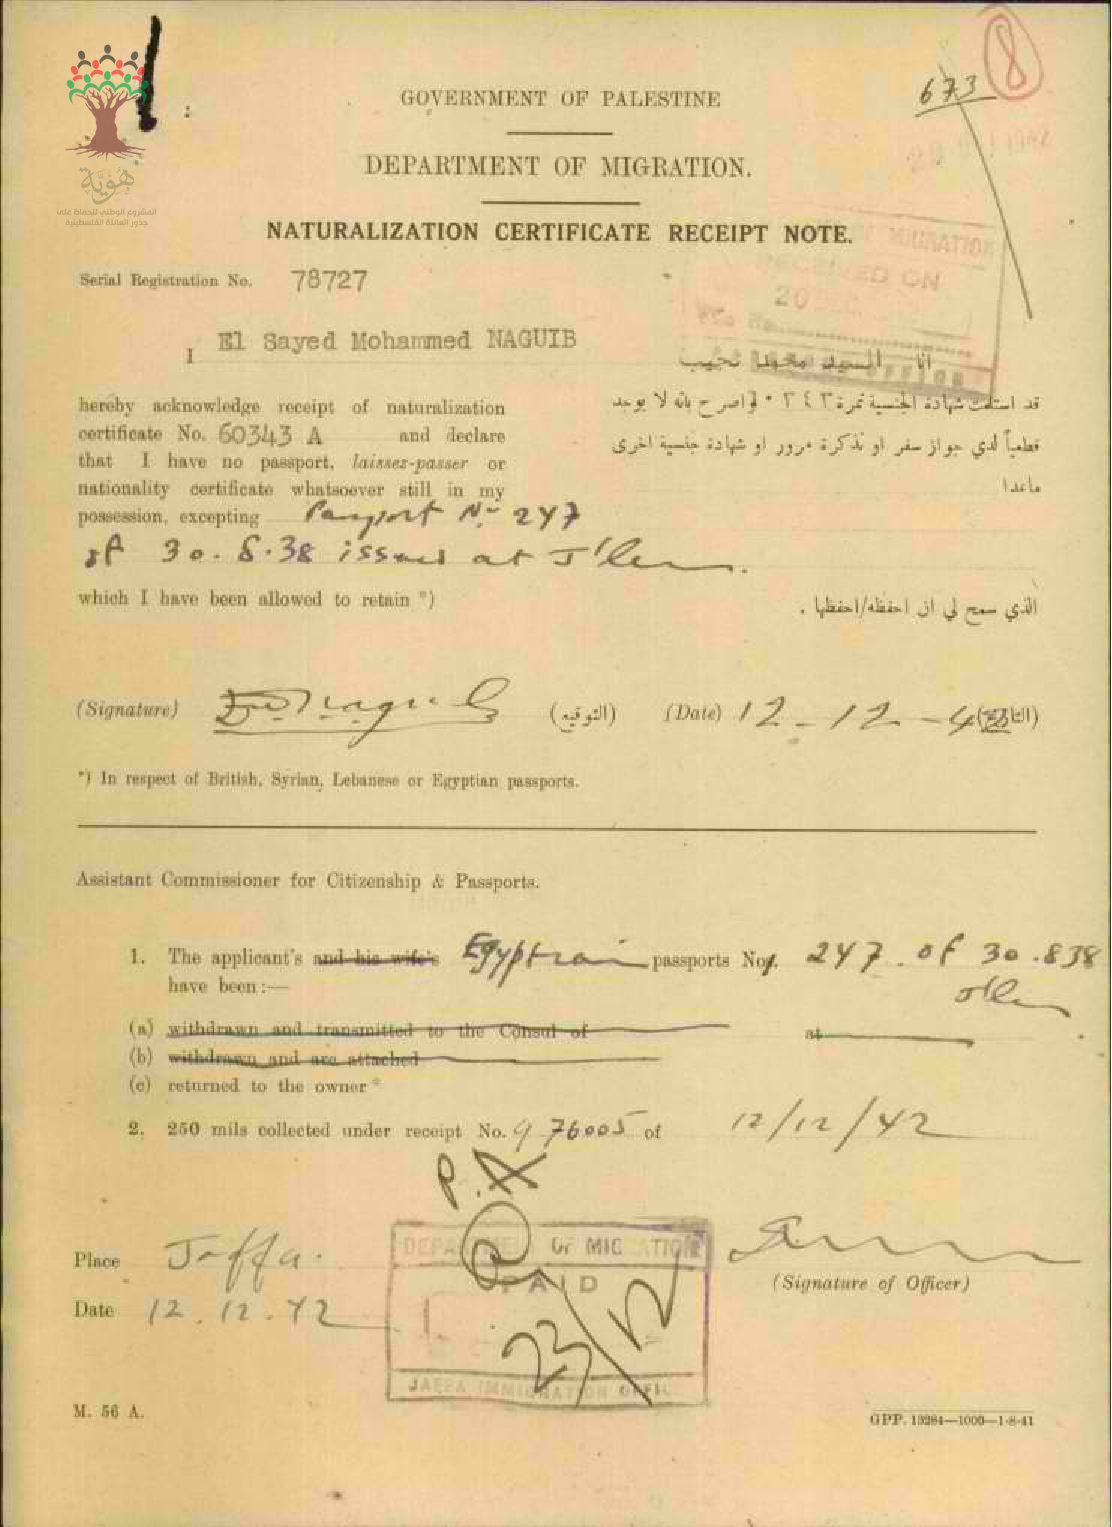 هوية
المشروع الوطني للحفاظ على
جذور العائلة الفلسطينية
8
673
GOVERNMENT OF PALESTINE
DEPARTMENT OF MIGRATION.
NATURALIZATION CERTIFICATE RECEIPT NOTE.
MIGRATION
RECEIVED ON
20
Serial Registration No. 78727
I El Sayed Mohammed NAGUIB
انا السيد محمد نجيب
hereby acknowledge receipt of naturalization
certificate No. 60343 A and declare
that I have no passport, laisser-passer or
nationality certificate whatsoever still in my
possession, excepting Passport No 247
of 30.8.38 issued at J'lem.
which I have been allowed to retain *)
قد استلمت شهادة الجنسية نمرة واصرح بانه لا يوجد
قطعياً لدي جواز سفر او تذكرة مرور او شهادة جنسية اخرى
ماعدا
الذي سمح لي ان احفظه/احفظها .
(Signature) (التوقيع) (Date) 12-12-42 (التاريخ)
*) In respect of British, Syrian, Lebanese or Egyptian passports.
Assistant Commissioner for Citizenship & Passports.
1. The applicant's and his wife's Egyptian passports Nos. 247 of 30.838
J'lem
have been:—
(a) withdrawn and transmitted to the Consul of at
(b) withdrawn and are attached
(c) returned to the owner *
2. 250 mils collected under receipt No. 9 76005 of 12/12/42
P.A
Place Jaffa.
Date 12.12.42
DEPARTMENT OF MIGRATION
PAID
23/12
JAFFA IMMIGRATION OFFICE
(Signature of Officer)
M. 56 A.
GPP. 13284—1000—1-8-41